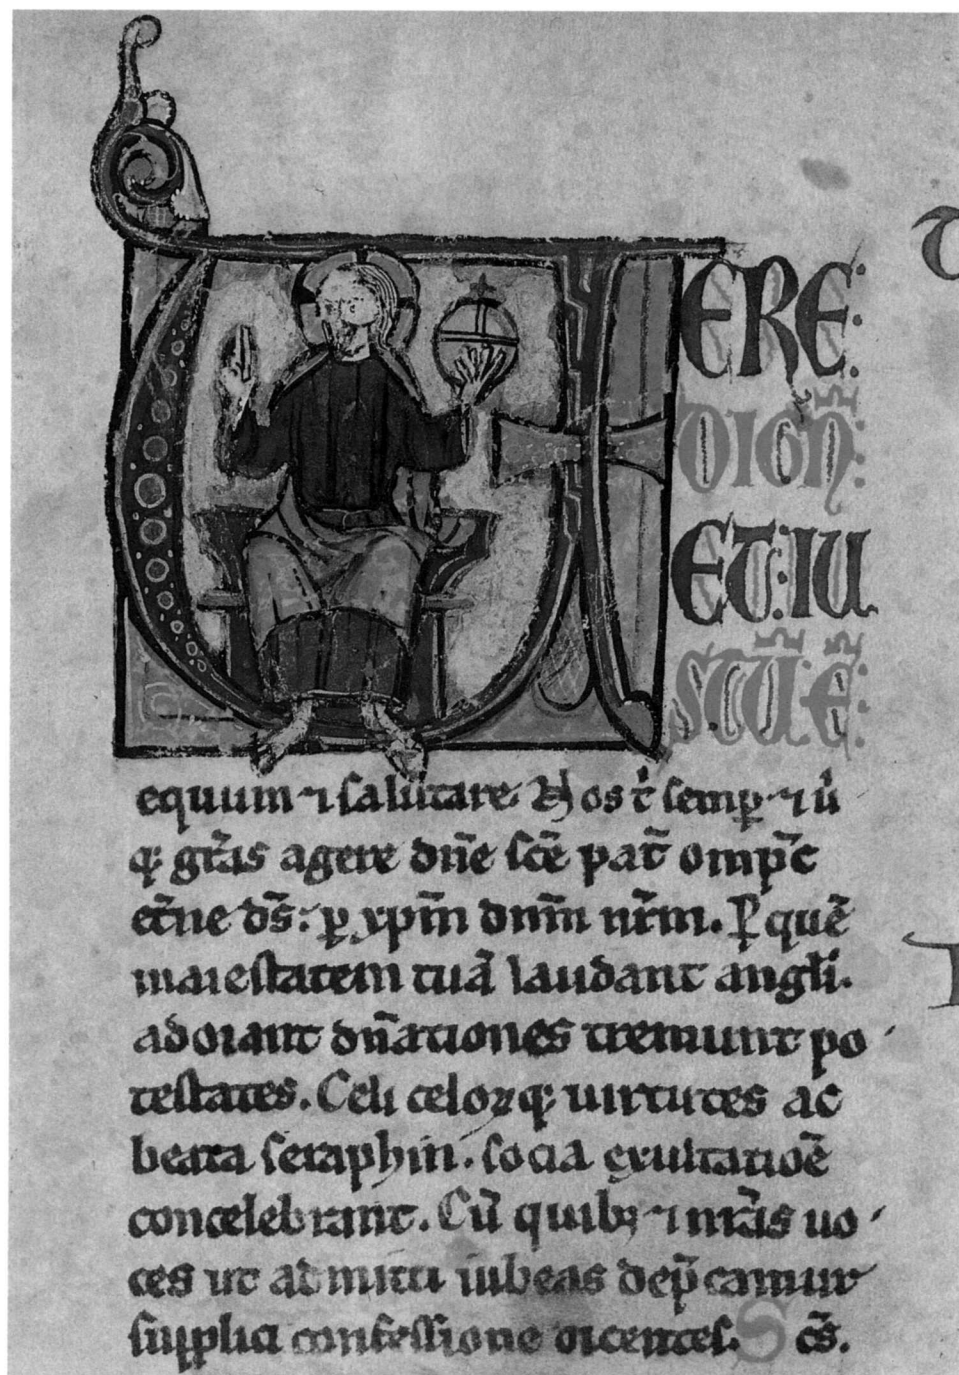 VERE:
DIGÑ:
ET:IU
STŪ:Ē:
equum ⁊ salutare. Nos t̄ semp̱ ⁊ u
q; gr̄as agere dn̄e sc̄e pat̄ omp̄c
et̄ne ds̄: ꝑ xp̄m dnm̄ nr̄m. P̱ quē
maiestatem tuā laudant angl̄i.
adorant dn̄ationes tremunt po
testates. Celi celoꝝq; uirtutes ac
beata seraphin. socia exultatiōe
concelebrant. Cū quibꝫ ⁊ nr̄as uo
ces ut admitti iubeas dep̄camur
supplici confessione dicentes. Scs̄.